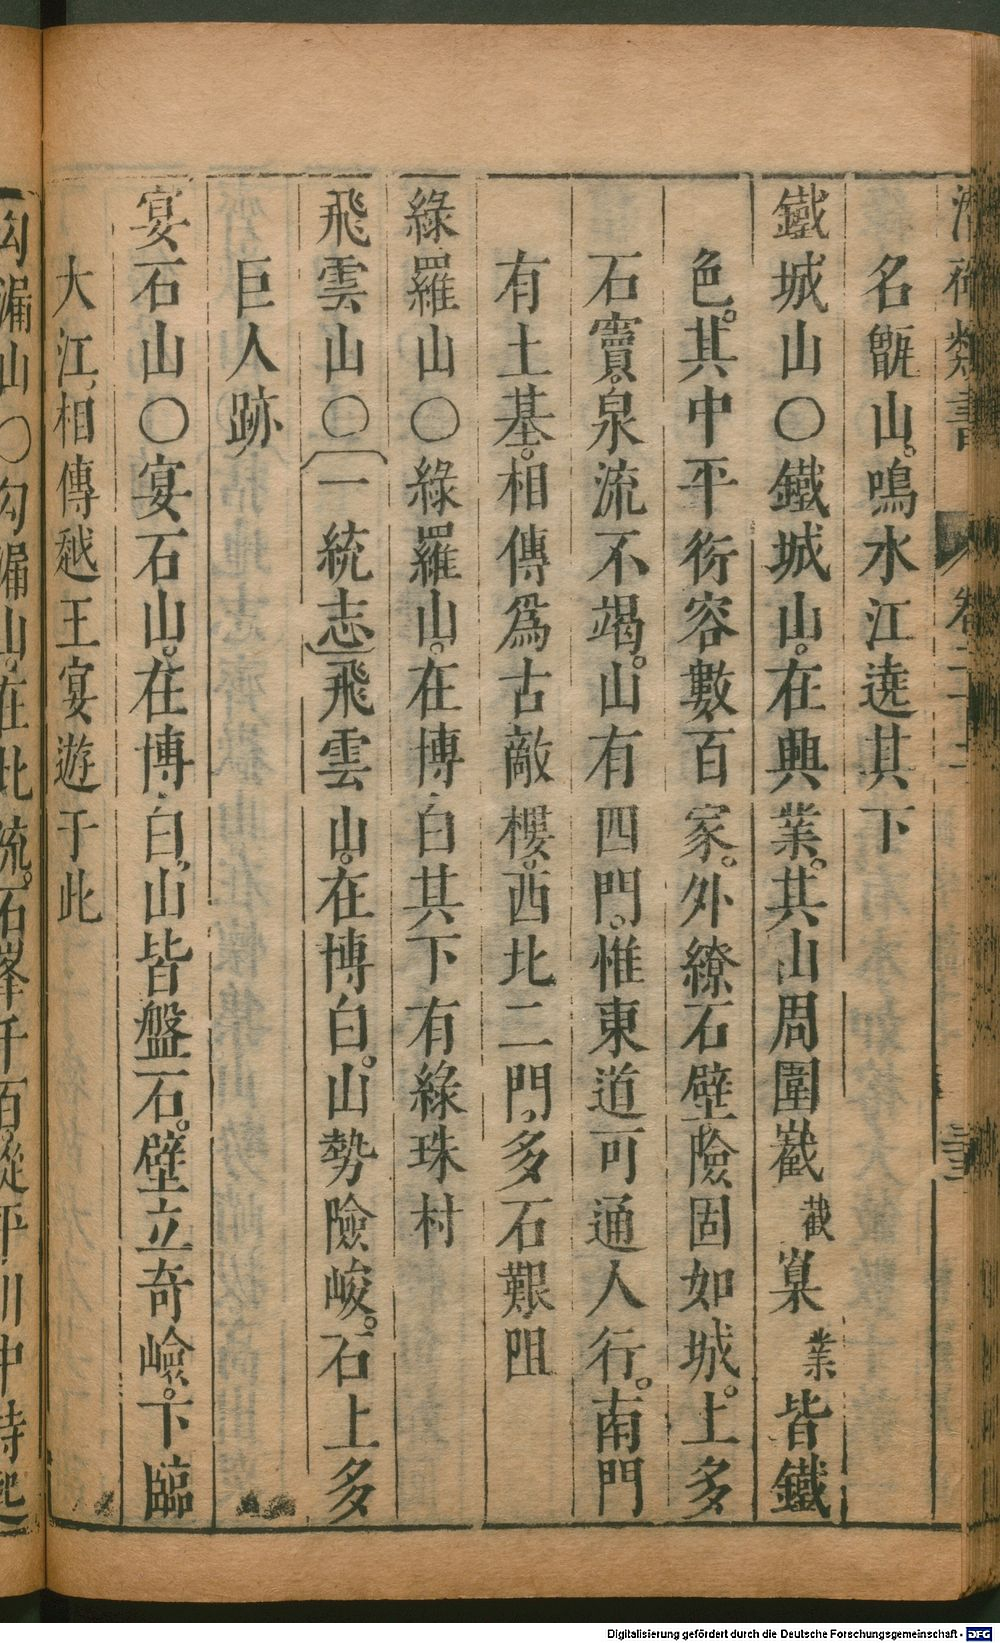 類書
卷二十
名甑山。鳴水江遶其下
鐵城山〇鐵城山。在興業。其山周圍嶻截嶪業皆鐵
色。其中平衍容數百家。外繚石壁險固如城。上多
石竇。泉流不竭。山有四門。惟東道可通人行。南門
有土基。相傳爲古敵樓。西北二門。多石艱阻
綠羅山〇綠羅山。在博白其下有綠珠村
飛雲山〇一統志飛雲山。在博白。山勢險峻。石上多
巨人跡
宴石山〇宴石山。在博白。山皆盤石。壁立奇嶮。下臨
大江。相傳越王宴遊于此
勾漏山〇勾漏山。在北流。石峯千百從平川中特起
Digitalisierung gefördert durch die Deutsche Forschungsgemeinschaft - DFG